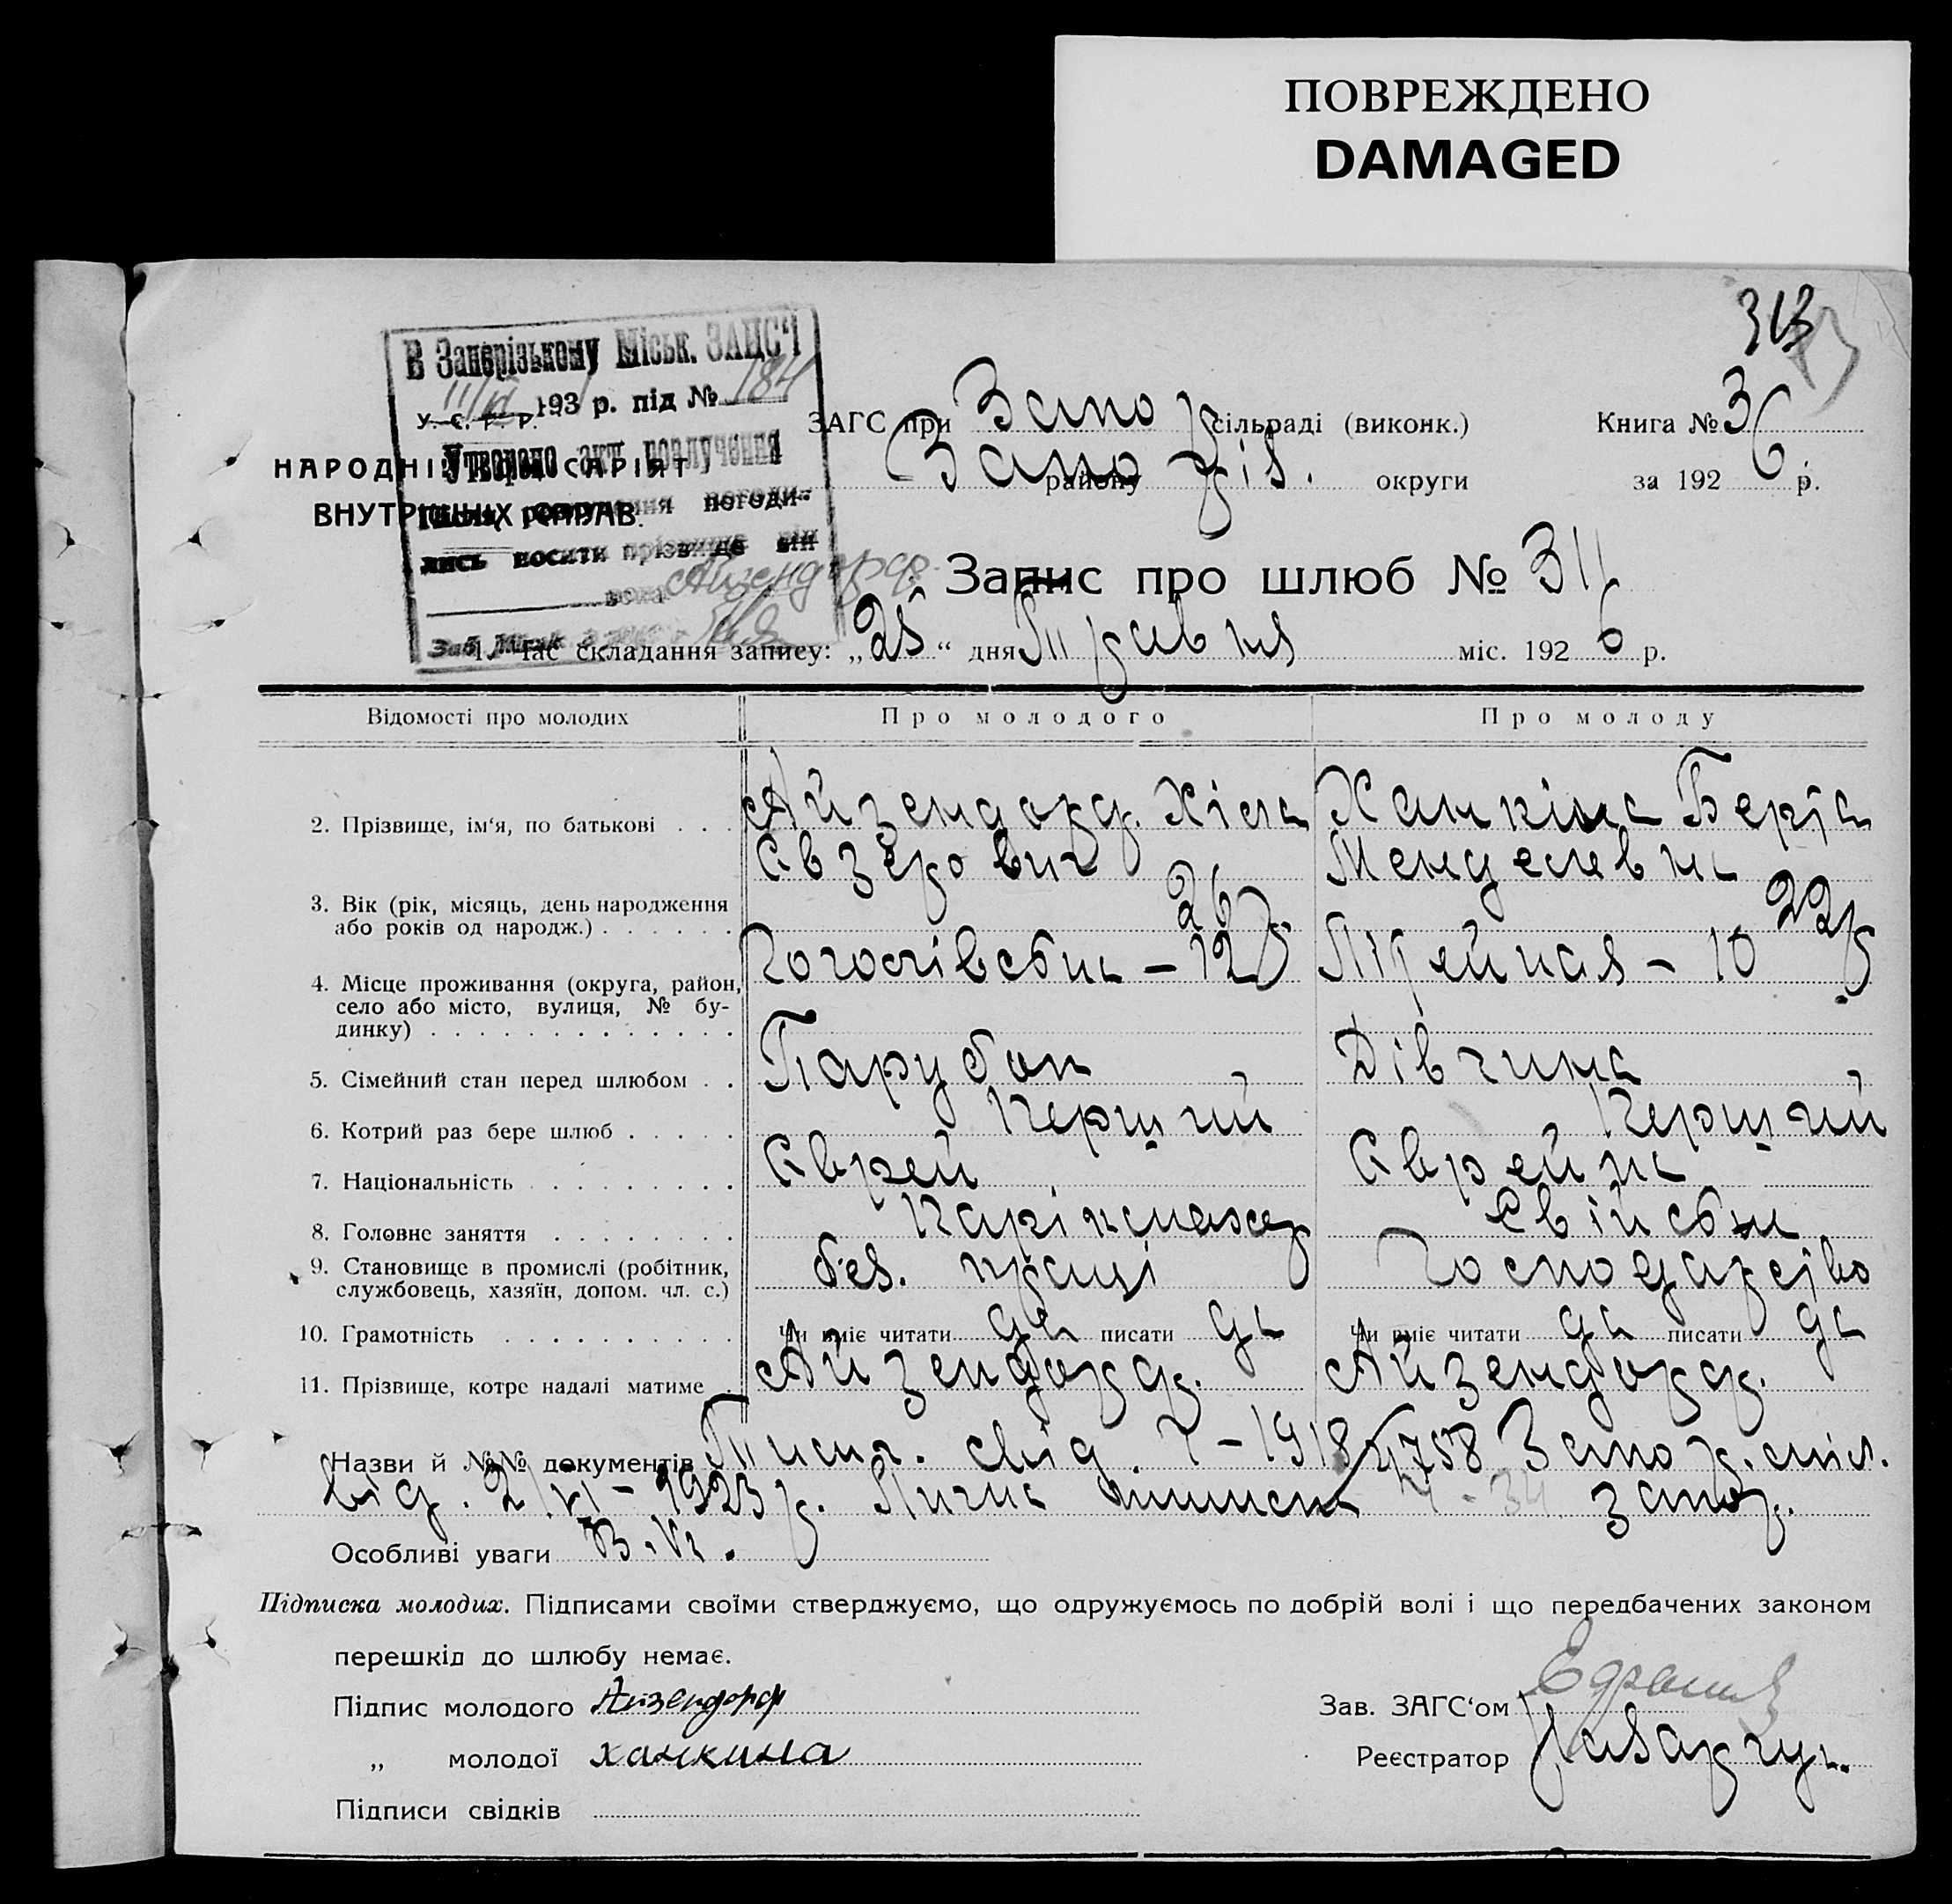 ПОВРЕЖДЕНО
DAMAGED
313
В Запорізькому Міськ. ЗАГС'і
11/VI 193 р. під № 184
У. С. Р. Р.
Утворено акт розлучення
НАРОДНІЙ КОМІСАРІЯТ
ВНУТРІШНІХ СПРАВ.
погоди-
лись носити прізв-ще він
вона Айзендорф
ЗАГС при Запор сільраді (виконк.) Книга № 36
району Запоріз. округи за 1926 р.
Запис про шлюб № 311
1. Час складання запису: „25“ дня Травня міс. 1926 р.
Відомості про молодих Про молодого Про молоду
2. Прізвище, ім‘я, по батькові . . . Айзендорф. Хіла Ханкіна Берта
Євзерович Менделевна
3. Вік (рік, місяць, день народження
або років од народж.) . . . . . . 26 р. 22 р.
4. Місце проживання (округа, район,
село або місто, вулиця, № бу-
динку) . . . . . . . . . . . . . – 12 – 10
5. Сімейний стан перед шлюбом . . Парубок, Дівчина,
6. Котрий раз бере шлюб . . . . . Перший Перший
7. Національність . . . . . . . . . Єврей Єврейка
8. Головне заняття . . . . . . . . Парікмахер Свійське
9. Становище в промислі (робітник,
службовець, хазяїн, допом. чл. с.) без. праці господарство
10. Грамотність . . . . . . . . . . Чи вміє читати да писати да Чи вміє читати да писати да
11. Прізвище, котре надалі матиме . Айзендорф. Айзендорф.
Назви й №№ документів свід. Ч – 1918/4758 Запор.
від. 2/VI – 1923 р. Ч - 34 Запор.
Особливі уваги
Підписка молодих. Підписами своїми стверджуємо, що одружуємось по добрій волі і що передбачених законом
перешкід до шлюбу немає.
Підпис молодого Айзендорф Зав. ЗАГС‘ом
„ молодої ханкина Реєстратор
Підписи свідків